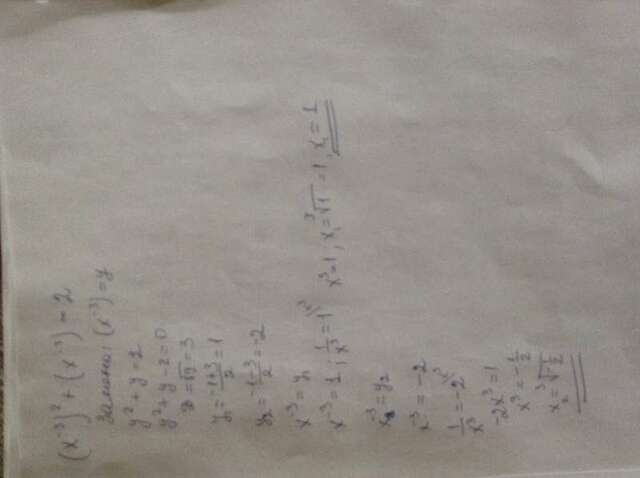 (x⁻³)² + (x⁻³) = 2
Замена: (x⁻³) = y
y² + y = 2
y² + y - 2 = 0
D = √9 = 3
y₁ = (-1+3)/2 = 1
y₂ = (-1-3)/2 = -2
x⁻³ = y₁
x⁻³ = 1 ; 1/x³ = 1 \x³ x³ = 1, x₁ = ³√1 = 1, x₁ = 1
x⁻³ = y₂
x⁻³ = -2
1/x³ = -2 \x³
-2x³ = 1
x³ = -1/2
x₂ = ³√(-1/2)